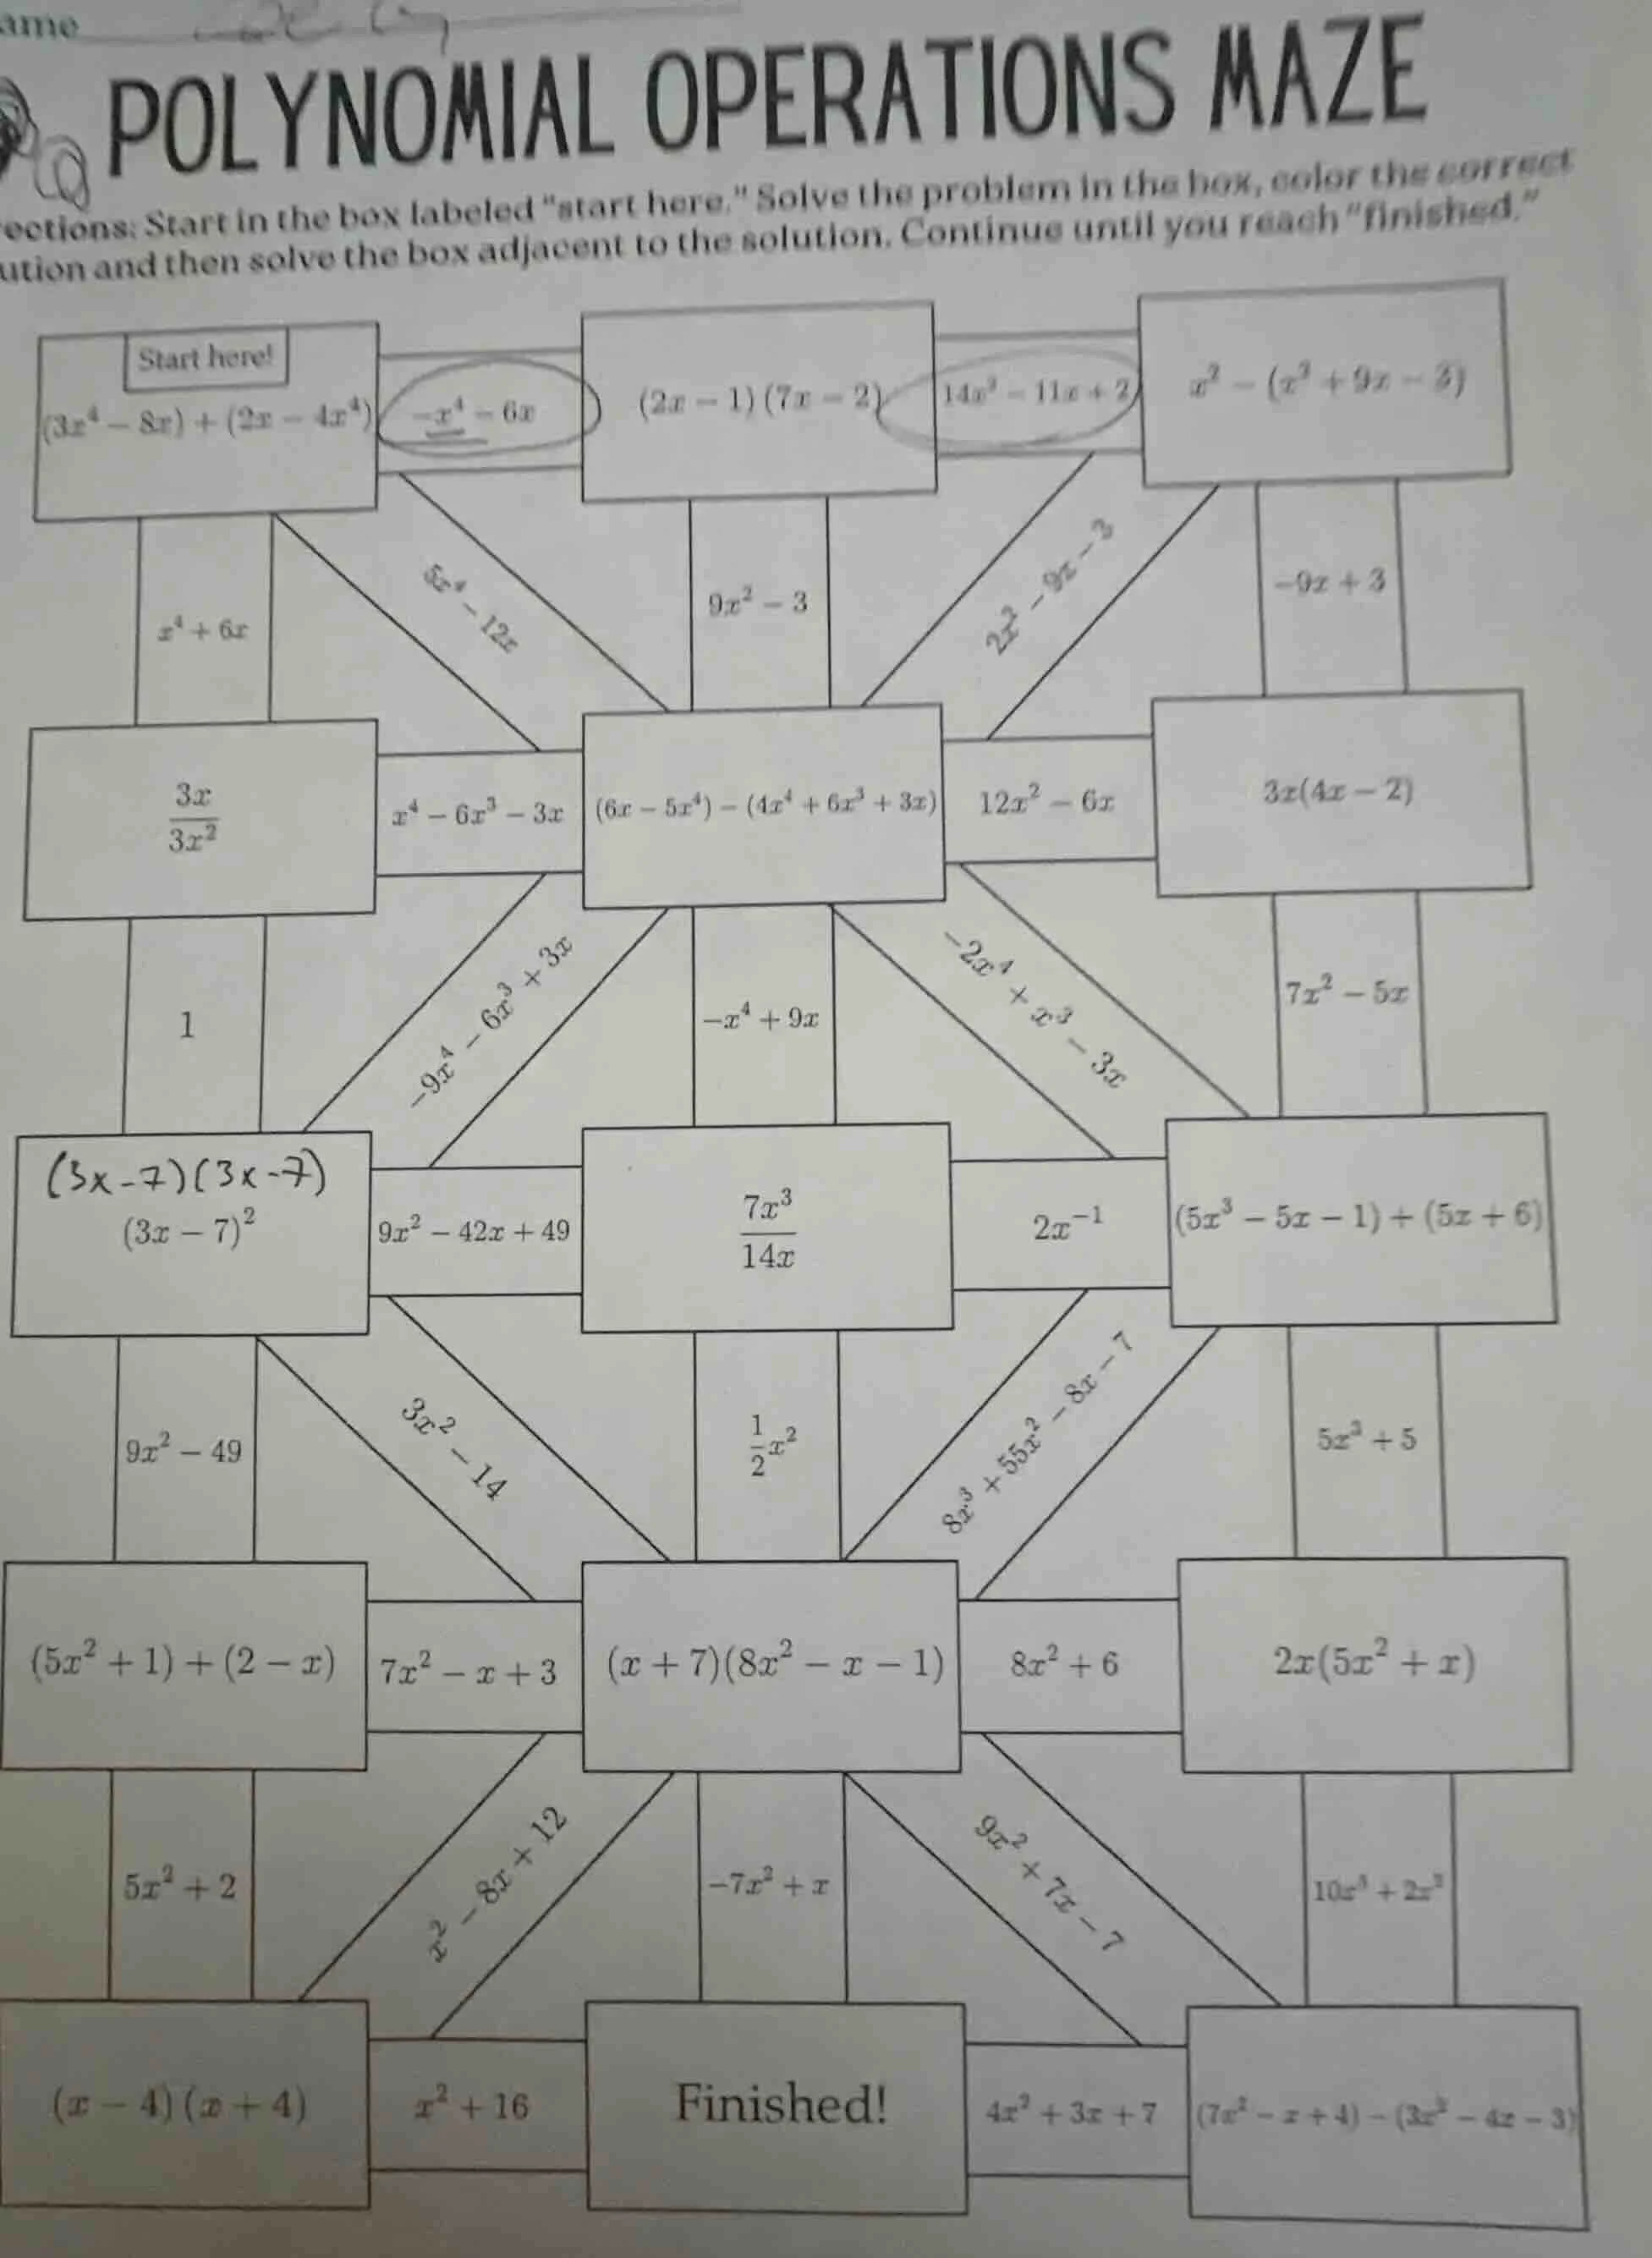 ame
POLYNOMIAL OPERATIONS MAZE
rections: Start in the box labeled "start here." Solve the problem in the box, color the correct
ution and then solve the box adjacent to the solution. Continue until you reach "finished."
Start here!
(3x⁴ − 8x) + (2x − 4x⁴)
−x⁴ − 6x
(2x − 1)(7x − 2)
14x² − 11x + 2
x² − (x² + 9x − 3)
x⁴ + 6x
5x⁴ − 12x
9x² − 3
2x² − 9x − 3
−9x + 3
3x/3x²
x⁴ − 6x³ − 3x
(6x − 5x⁴) − (4x⁴ + 6x³ + 3x)
12x² − 6x
3x(4x − 2)
1
−9x⁴ − 6x³ + 3x
−x⁴ + 9x
−2x⁴ + x³ − 3x
7x² − 5x
(3x-7)(3x-7)
(3x − 7)²
9x² − 42x + 49
7x³/14x
2x⁻¹
(5x³ − 5x − 1) + (5x + 6)
9x² − 49
3x² − 14
1/2 x²
8x³ + 55x² − 8x − 7
5x³ + 5
(5x² + 1) + (2 − x)
7x² − x + 3
(x + 7)(8x² − x − 1)
8x² + 6
2x(5x² + x)
5x² + 2
x² − 8x + 12
−7x² + x
9x² + 7x − 7
10x³ + 2x²
(x − 4)(x + 4)
x² + 16
Finished!
4x² + 3x + 7
(7x² − x + 4) − (3x² − 4x − 3)